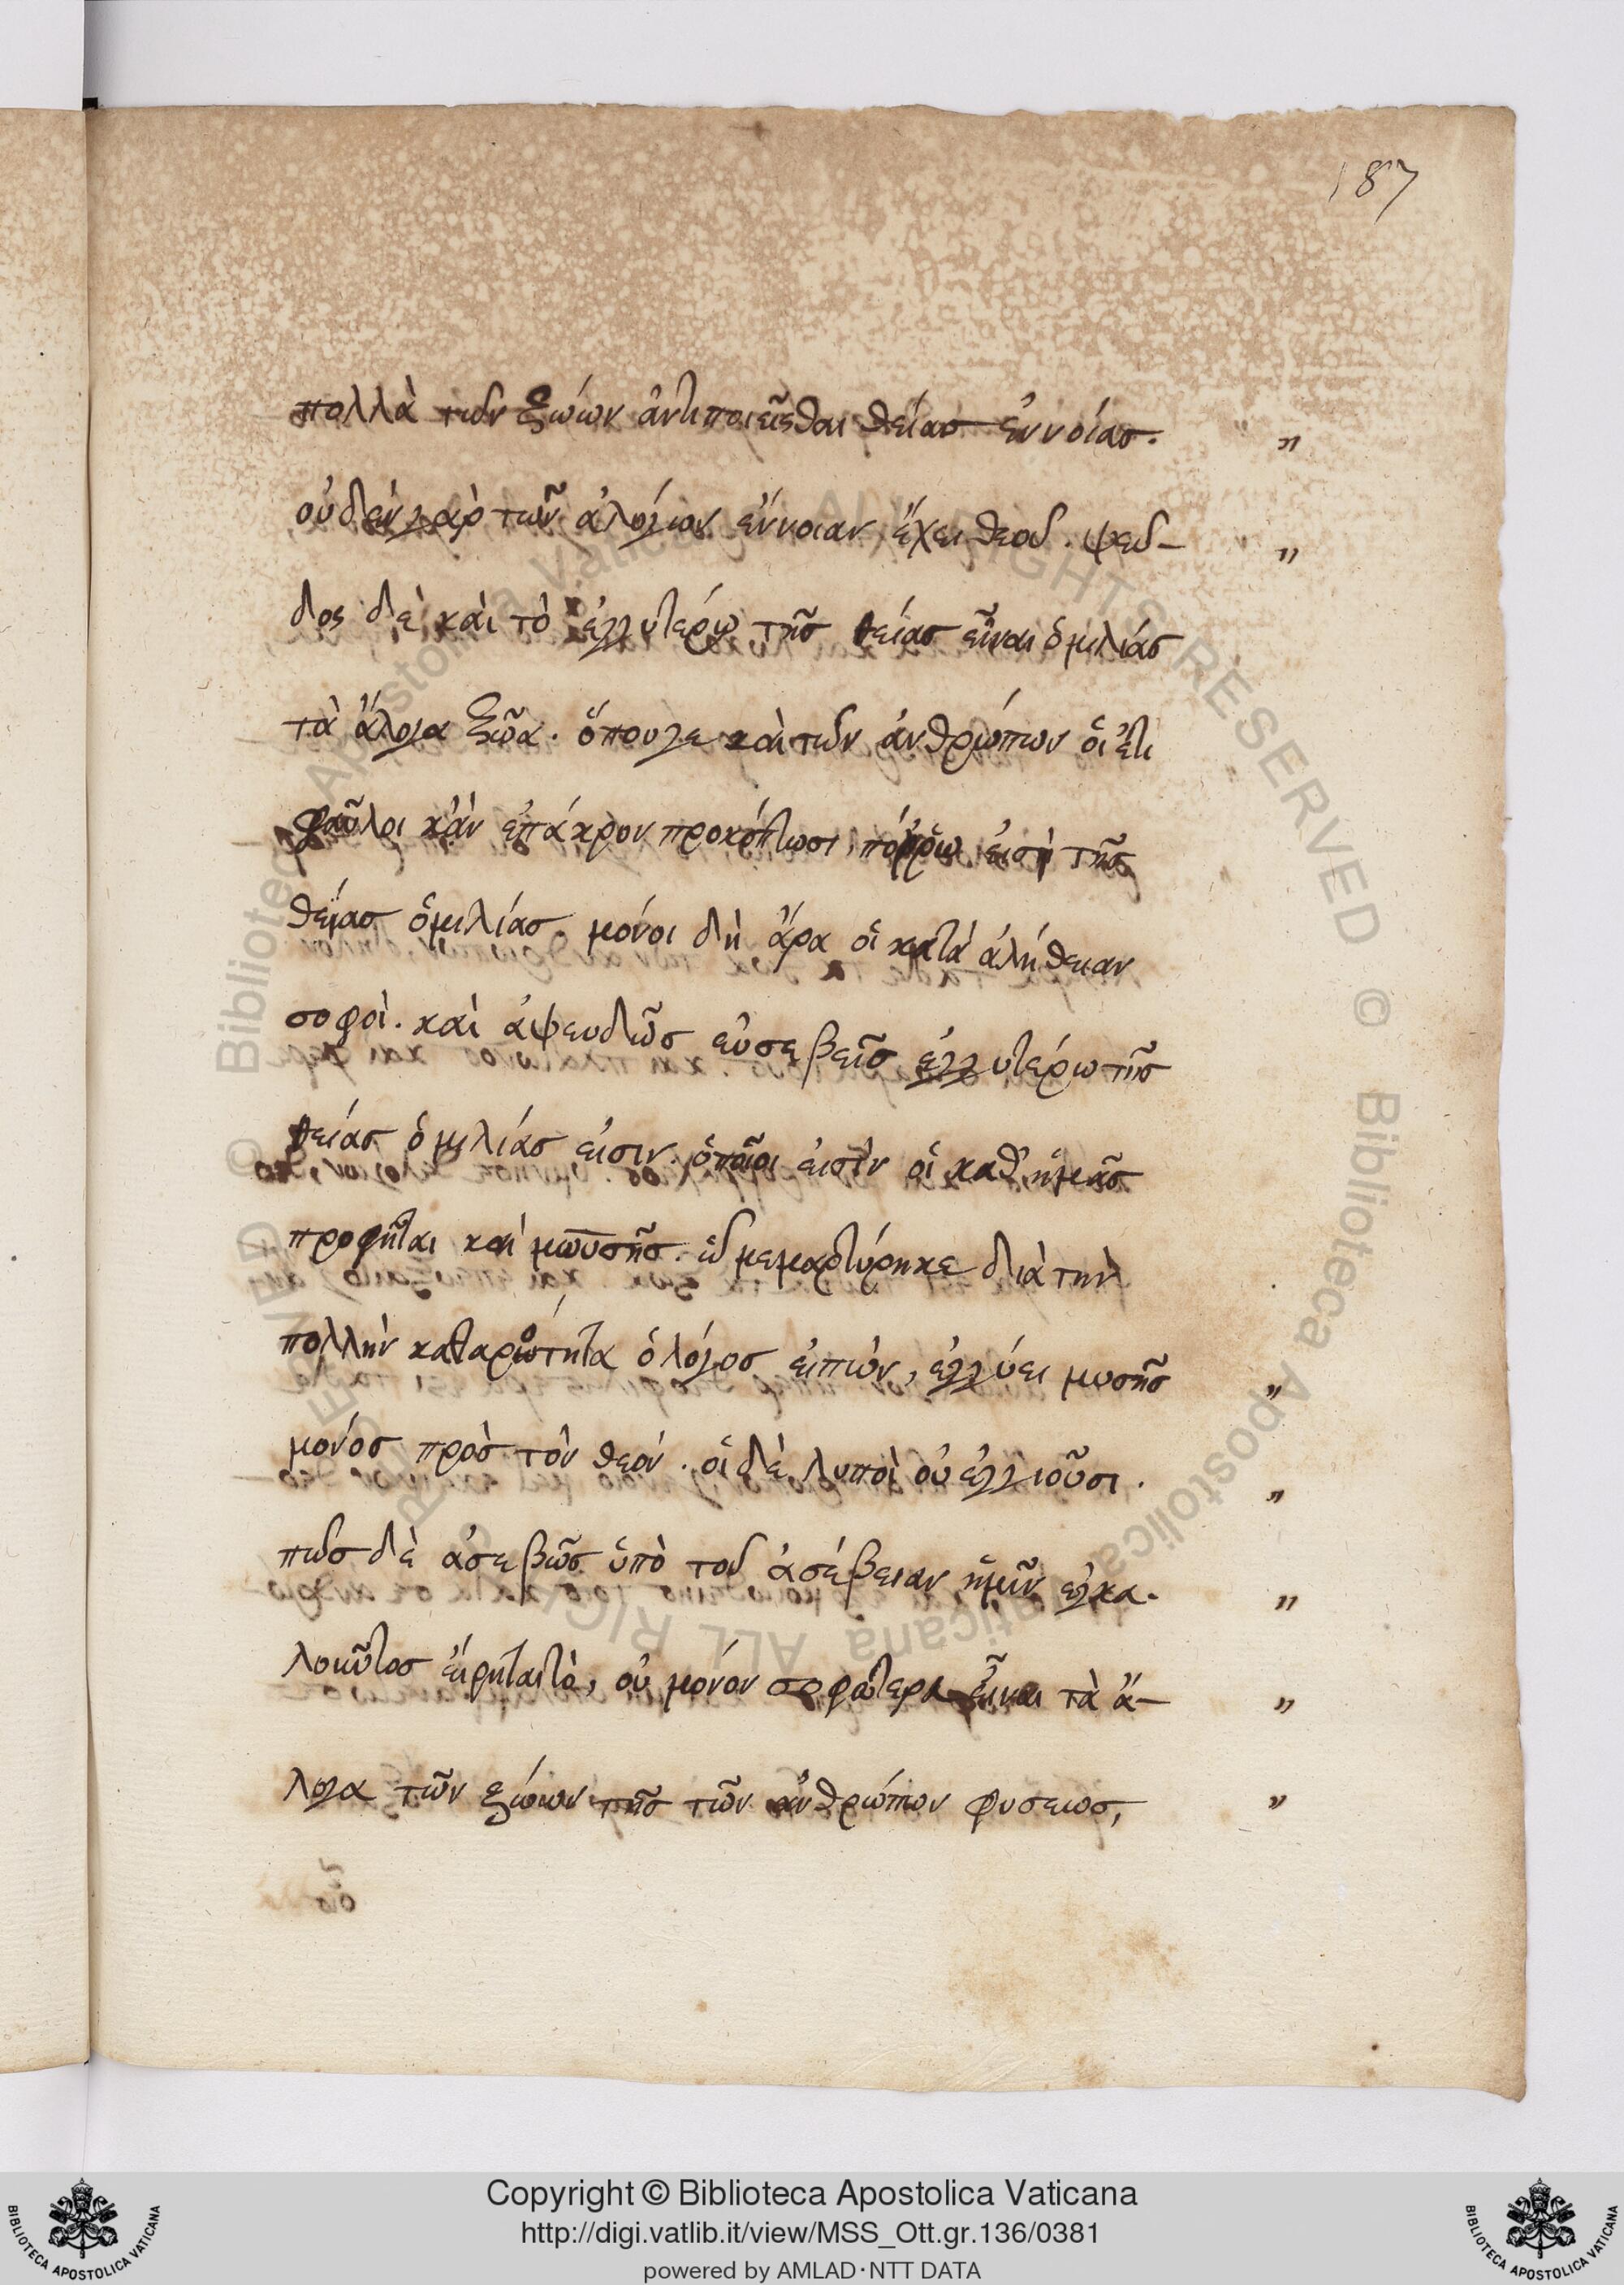 187
πολλὰ τῶν ζώων ἀντιποιεῖσθαι θείας ἐννοίας. "
οὐδὲν γὰρ τῶν ἀλόγων ἔννοιαν ἔχει θεοῦ. ψεῦ- "
δος δὲ καὶ τὸ ἐγγυτέρω τῆς θείας εἶναι ὁμιλίας
τὰ ἄλογα ζῶα. ὅπουγε καὶ τῶν ἀνθρώπων οἱ ἔτι
φαῦλοι κἂν ἐπάκρον προκόπτωσι, πόρρω εἰσὶ τῆς
θείας ὁμιλίας. μόνοι δὴ ἄρα οἱ κατὰ ἀλήθειαν
σοφοὶ. καὶ ἀψευδῶς εὐσεβεῖς ἐγγυτέρω τῆς
θείας ὁμιλίας εἰσιν. ὁποῖοι εἰσὶν οἱ καθ' ἡμᾶς
προφῆται καὶ μωϋσῆς. ᾧ μεμαρτύρηκε διὰ τὴν
πολλὴν καθαρότητα ὁ λόγος εἰπὼν, ἐγγύει μωσῆς "
μονὸς πρὸς τὸν θεὸν. οἱ δὲ λυποὶ οὐ ἐγγιοῦσι. "
πῶς δὲ ἀσεβῶς ὑπὸ τοῦ ἀσέβειαν ἡμῖν εγκα- "
λοῦντος εἴρηται τὸ, οὐ μόνον σοφώτερα εἶναι τὰ ἄ- "
λογα τῶν ζώων τῆς τῶν ἀνθρώπων φυσεως, "
Copyright © Biblioteca Apostolica Vaticana
http://digi.vatlib.it/view/MSS_Ott.gr.136/0381
powered by AMLAD·NTT DATA
BIBLIOTECA APOSTOLICA VATICANA
BIBLIOTECA APOSTOLICA VATICANA
Biblioteca Apostolica Vaticana ALL RIGHTS RESERVED © Biblioteca Apostolica Vaticana ALL RIGHTS RESERVED ©